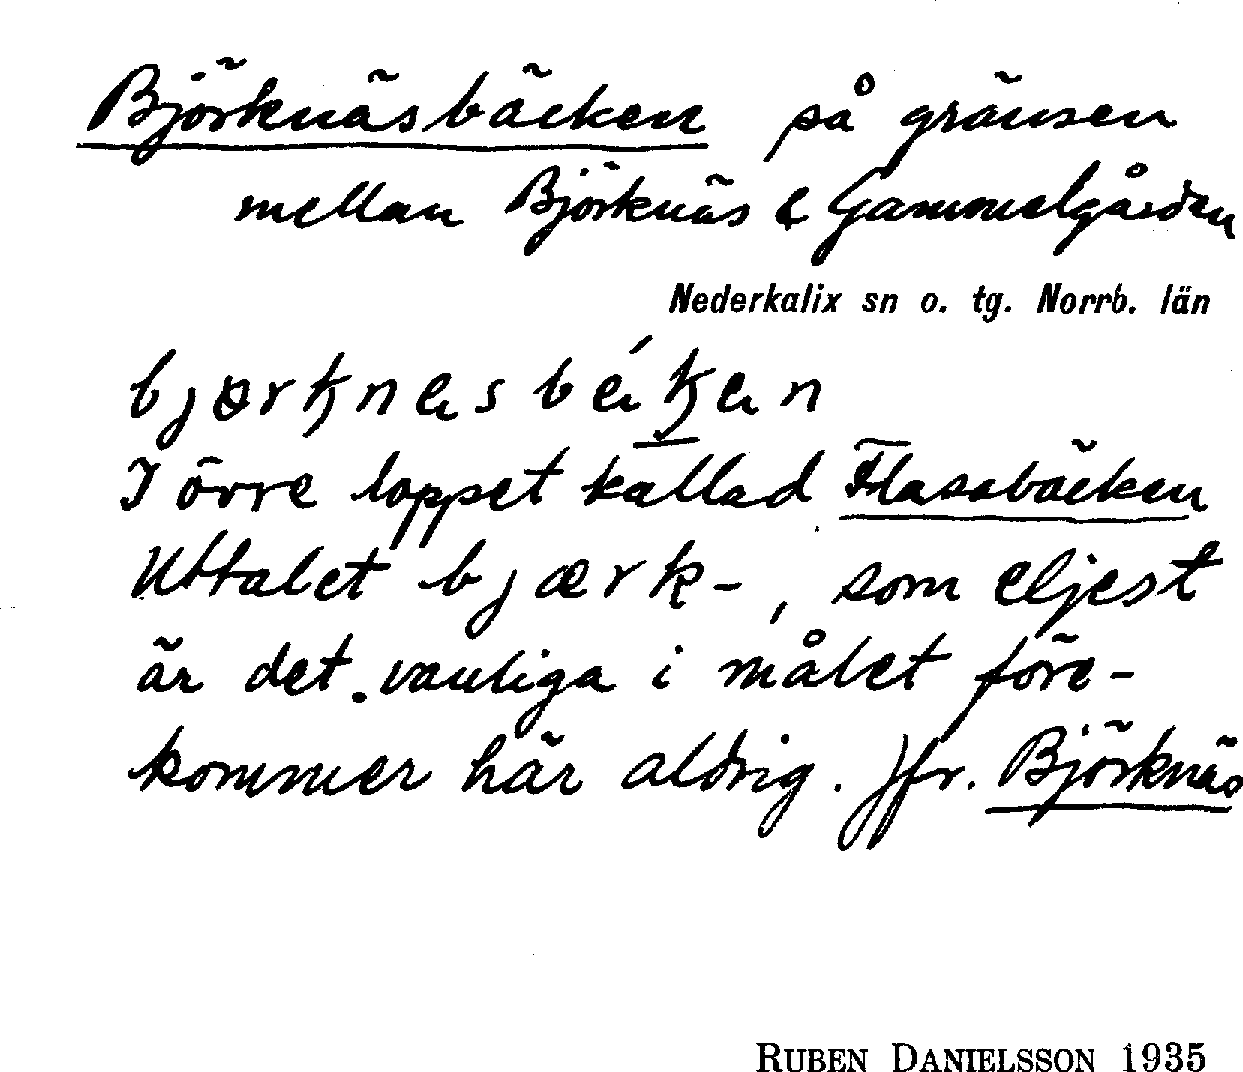 Björknäsbäcken på gränsen
mellan Björknäs & Gammelgården
Nederkalix sn o. tg. Norrb. län
I övre loppet kallad Flassbäcken
Uttalet bjærk-, som eljest
är det vanliga i målet före-
kommer här aldrig. Jfr. Björknäs
RUBEN DANIELSSON 1935